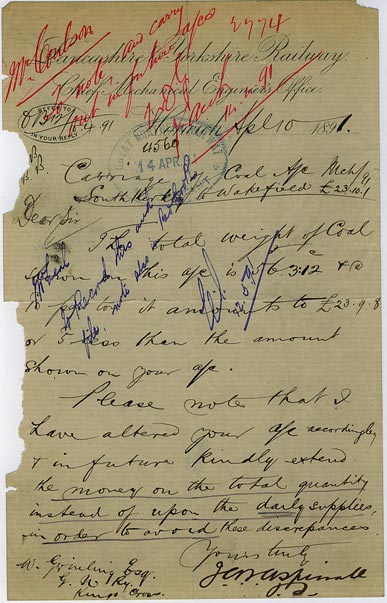 Mr Coulson
to note and carry
out in future cases
2774
14.4.91
Lancashire & Yorkshire Railway.
Chief Mechanical Engineer's Office.
REFER TO
IN YOUR REPLY
10.4.91
Horwich April 10 1891.
4560
GREAT NORTHERN
14 APR
Carriage Coal A/c Mch/91
South Kirkby to Wakefield £23.10.1
Dear Sir
The total weight of Coal
shown on this a/c is 56 3.12 & @
per ton it amounts to £23.9.8
or 5d less than the amount
shown on your a/c.
Please note that I
have altered your a/c accordingly
& in future kindly extend
the money on the total quantity
instead of upon the daily supplies,
in order to avoid these discrepances
Yours truly
J.A.F. Aspinall
W. Grinling Esq.
G. N. Ry.
Kings Cross.